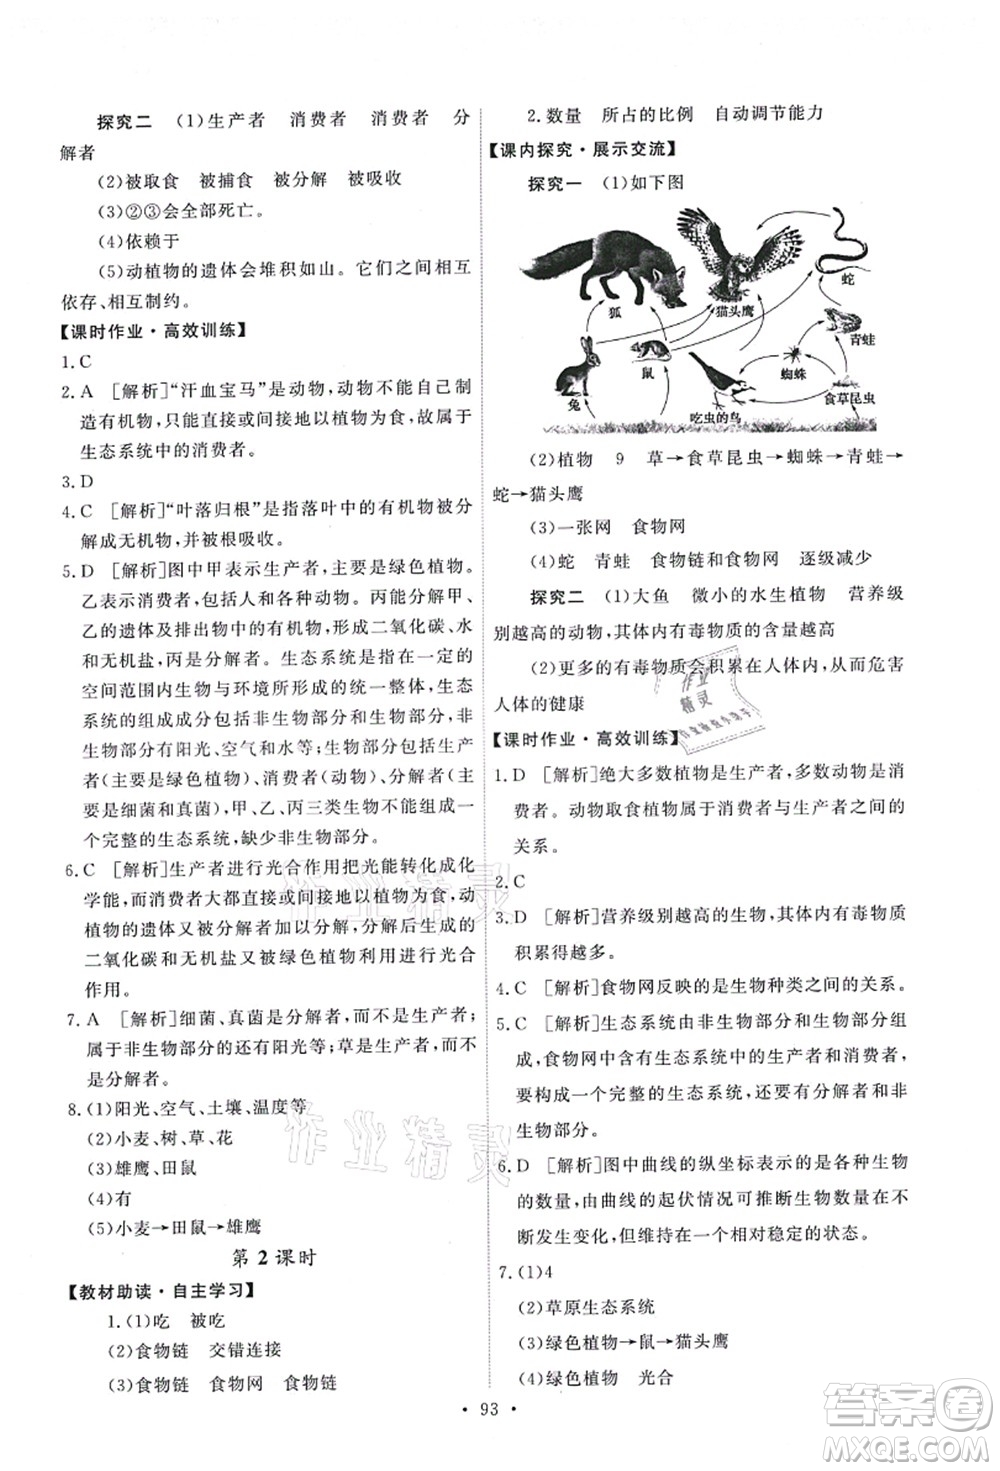 探究二　(1)生产者　消费者　消费者　分
解者
(2)被取食　被捕食　被分解　被吸收
(3)②③会全部死亡。
(4)依赖于
(5)动植物的遗体会堆积如山。它们之间相互
依存、相互制约。
【课时作业·高效训练】
1.C
2.A　[解析]“汗血宝马”是动物,动物不能自己制
造有机物,只能直接或间接地以植物为食,故属于
生态系统中的消费者。
3.D
4.C　[解析]“叶落归根”是指落叶中的有机物被分
解成无机物,并被根吸收。
5.D　[解析]图中甲表示生产者,主要是绿色植物。
乙表示消费者,包括人和各种动物。丙能分解甲、
乙的遗体及排出物中的有机物,形成二氧化碳、水
和无机盐,丙是分解者。生态系统是指在一定的
空间范围内生物与环境所形成的统一整体,生态
系统的组成成分包括非生物部分和生物部分,非
生物部分有阳光、空气和水等;生物部分包括生产
者(主要是绿色植物)、消费者(动物)、分解者(主
要是细菌和真菌),甲、乙、丙三类生物不能组成一
个完整的生态系统,缺少非生物部分。
6.C　[解析]生产者进行光合作用把光能转化成化
学能,而消费者大都直接或间接地以植物为食,动
植物的遗体又被分解者分解,分解后生成的
二氧化碳和无机盐又被绿色植物利用进行光合
作用。
7.A　[解析]细菌、真菌是分解者,而不是生产者;
属于非生物部分的还有阳光等;草是生产者,而不
是分解者。
8.(1)阳光、空气、土壤、温度等
(2)小麦、树、草、花
(3)雄鹰、田鼠
(4)有
(5)小麦→田鼠→雄鹰
第2课时
【教材助读·自主学习】
1.(1)吃　被吃
(2)食物链　交错连接
(3)食物链　食物网　食物链
2.数量　所占的比例　自动调节能力
【课内探究·展示交流】
探究一　(1)如下图
狐
猫头鹰
蛇
青蛙
兔
鼠
吃虫的鸟
蜘蛛
食草昆虫
(2)植物　9　草→食草昆虫→蜘蛛→青蛙→
蛇→猫头鹰
(3)一张网　食物网
(4)蛇　青蛙　食物链和食物网　逐级减少
探究二　(1)大鱼　微小的水生植物　营养级
别越高的动物,其体内有毒物质的含量越高
(2)更多的有毒物质会积累在人体内,从而危害
人体的健康
【课时作业·高效训练】
1.D　[解析]绝大多数植物是生产者,多数动物是消
费者。动物取食植物属于消费者与生产者之间的
关系。
2.C
3.D　[解析]营养级别越高的生物,其体内有毒物质
积累得越多。
4.C　[解析]食物网反映的是生物种类之间的关系。
5.C　[解析]生态系统由非生物部分和生物部分组
成,食物网中含有生态系统中的生产者和消费者,
要构成一个完整的生态系统,还要有分解者和非
生物部分。
6.D　[解析]图中曲线的纵坐标表示的是各种生物
的数量,由曲线的起伏情况可推断生物数量在不
断发生变化,但维持在一个相对稳定的状态。
7.(1)4
(2)草原生态系统
(3)绿色植物→鼠→猫头鹰
(4)绿色植物　光合
· 93 ·
作业精灵
作业精灵
作业精灵
答案圈
MXQE.COM